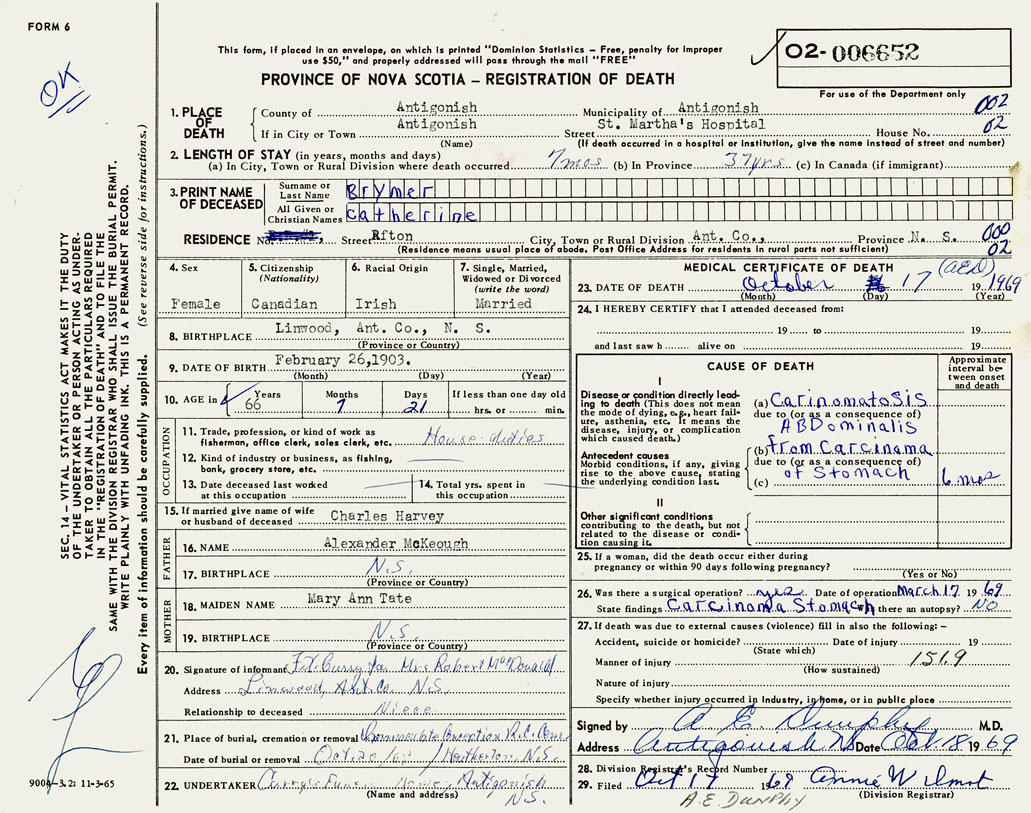 FORM 6
OK
This form, if placed in an envelope, on which is printed "Dominion Statistics – Free, penalty for improper
use $50," and properly addressed will pass through the mail "FREE"
PROVINCE OF NOVA SCOTIA – REGISTRATION OF DEATH
02-006652
For use of the Department only
1. PLACE OF DEATH
County of Antigonish Municipality of Antigonish 002
If in City or Town Antigonish Street St. Martha's Hospital House No. 02
(Name) (If death occurred in a hospital or institution, give the name instead of street and number)
2. LENGTH OF STAY (in years, months and days)
(a) In City, Town or Rural Division where death occurred 7mos (b) In Province 37yrs (c) In Canada (if immigrant)
3. PRINT NAME OF DECEASED
Surname or Last Name Brymer
All Given or Christian Names Catherine
RESIDENCE No. Street Afton City, Town or Rural Division Ant. Co., Province N. S. 000
(Residence means usual place of abode. Post Office Address for residents in rural parts not sufficient) 02
4. Sex
Female
5. Citizenship (Nationality)
Canadian
6. Racial Origin
Irish
7. Single, Married, Widowed or Divorced (write the word)
Married
8. BIRTHPLACE Linwood, Ant. Co., N. S.
(Province or Country)
9. DATE OF BIRTH February 26,1903.
(Month) (Day) (Year)
10. AGE in Years 66 Months 7 Days 21 If less than one day old hrs. or min.
OCCUPATION
11. Trade, profession, or kind of work as
fisherman, office clerk, sales clerk, etc. House-duties
12. Kind of industry or business, as fishing,
bank, grocery store, etc.
13. Date deceased last worked
at this occupation
14. Total yrs. spent in
this occupation
15. If married give name of wife
or husband of deceased Charles Harvey
FATHER
16. NAME Alexander McKeough
17. BIRTHPLACE N.S.
(Province or Country)
MOTHER
18. MAIDEN NAME Mary Ann Tate
19. BIRTHPLACE N.S.
(Province or Country)
20. Signature of informant F.X. Curry for Mrs Robert McDonald
Address Linwood, Ant. Co. N.S.
Relationship to deceased Niece
21. Place of burial, cremation or removal Immaculate Conception R.C. Cem.
Date of burial or removal Oct. 20/69 Heatherton, N.S.
22. UNDERTAKER Curry's Funeral Home, Antigonish
(Name and address) N.S.
MEDICAL CERTIFICATE OF DEATH (AED)
23. DATE OF DEATH October 17 1969
(Month) (Day) (Year)
24. I HEREBY CERTIFY that I attended deceased from:
19 to 19
and last saw h alive on 19
CAUSE OF DEATH
Approximate interval between onset and death
I
Disease or condition directly leading to death (This does not mean the mode of dying, e.g., heart failure, asthenia, etc. It means the disease, injury, or complication which caused death.)
(a) Carinomatosis
due to (or as a consequence of)
ABDominalis
Antecedent causes
Morbid conditions, if any, giving rise to the above cause, stating the underlying condition last.
(b) from Carcinama
due to (or as a consequence of)
(c) of Stomach 6 mos
II
Other significant conditions
contributing to the death, but not
related to the disease or condition causing it.
25. If a woman, did the death occur either during
pregnancy or within 90 days following pregnancy?
(Yes or No)
26. Was there a surgical operation? yes Date of operation March 17 1969
State findings Carcinoma Stomach Was there an autopsy? NO
27. If death was due to external causes (violence) fill in also the following: –
Accident, suicide or homicide? Date of injury 19
(State which)
Manner of injury 151.9
(How sustained)
Nature of injury
Specify whether injury occurred in Industry, in home, or in public place
Signed by A E. Dunphy M.D.
Address Antigonish NS Date Oct. 18 1969
28. Division Registrar's Record Number
29. Filed Oct 17 1969 Annie Wilmot
(Division Registrar)
A.E. DUNPHY
SEC. 14 – VITAL STATISTICS ACT MAKES IT THE DUTY
OF THE UNDERTAKER OR PERSON ACTING AS UNDER-
TAKER TO OBTAIN ALL THE PARTICULARS REQUIRED
IN THE "REGISTRATION OF DEATH" AND TO FILE THE
SAME WITH THE DIVISION REGISTRAR WHO SHALL ISSUE THE BURIAL PERMIT.
WRITE PLAINLY WITH UNFADING INK. THIS IS A PERMANENT RECORD.
Every item of information should be carefully supplied. (See reverse side for instructions.)
9004–3.2: 11-3-65